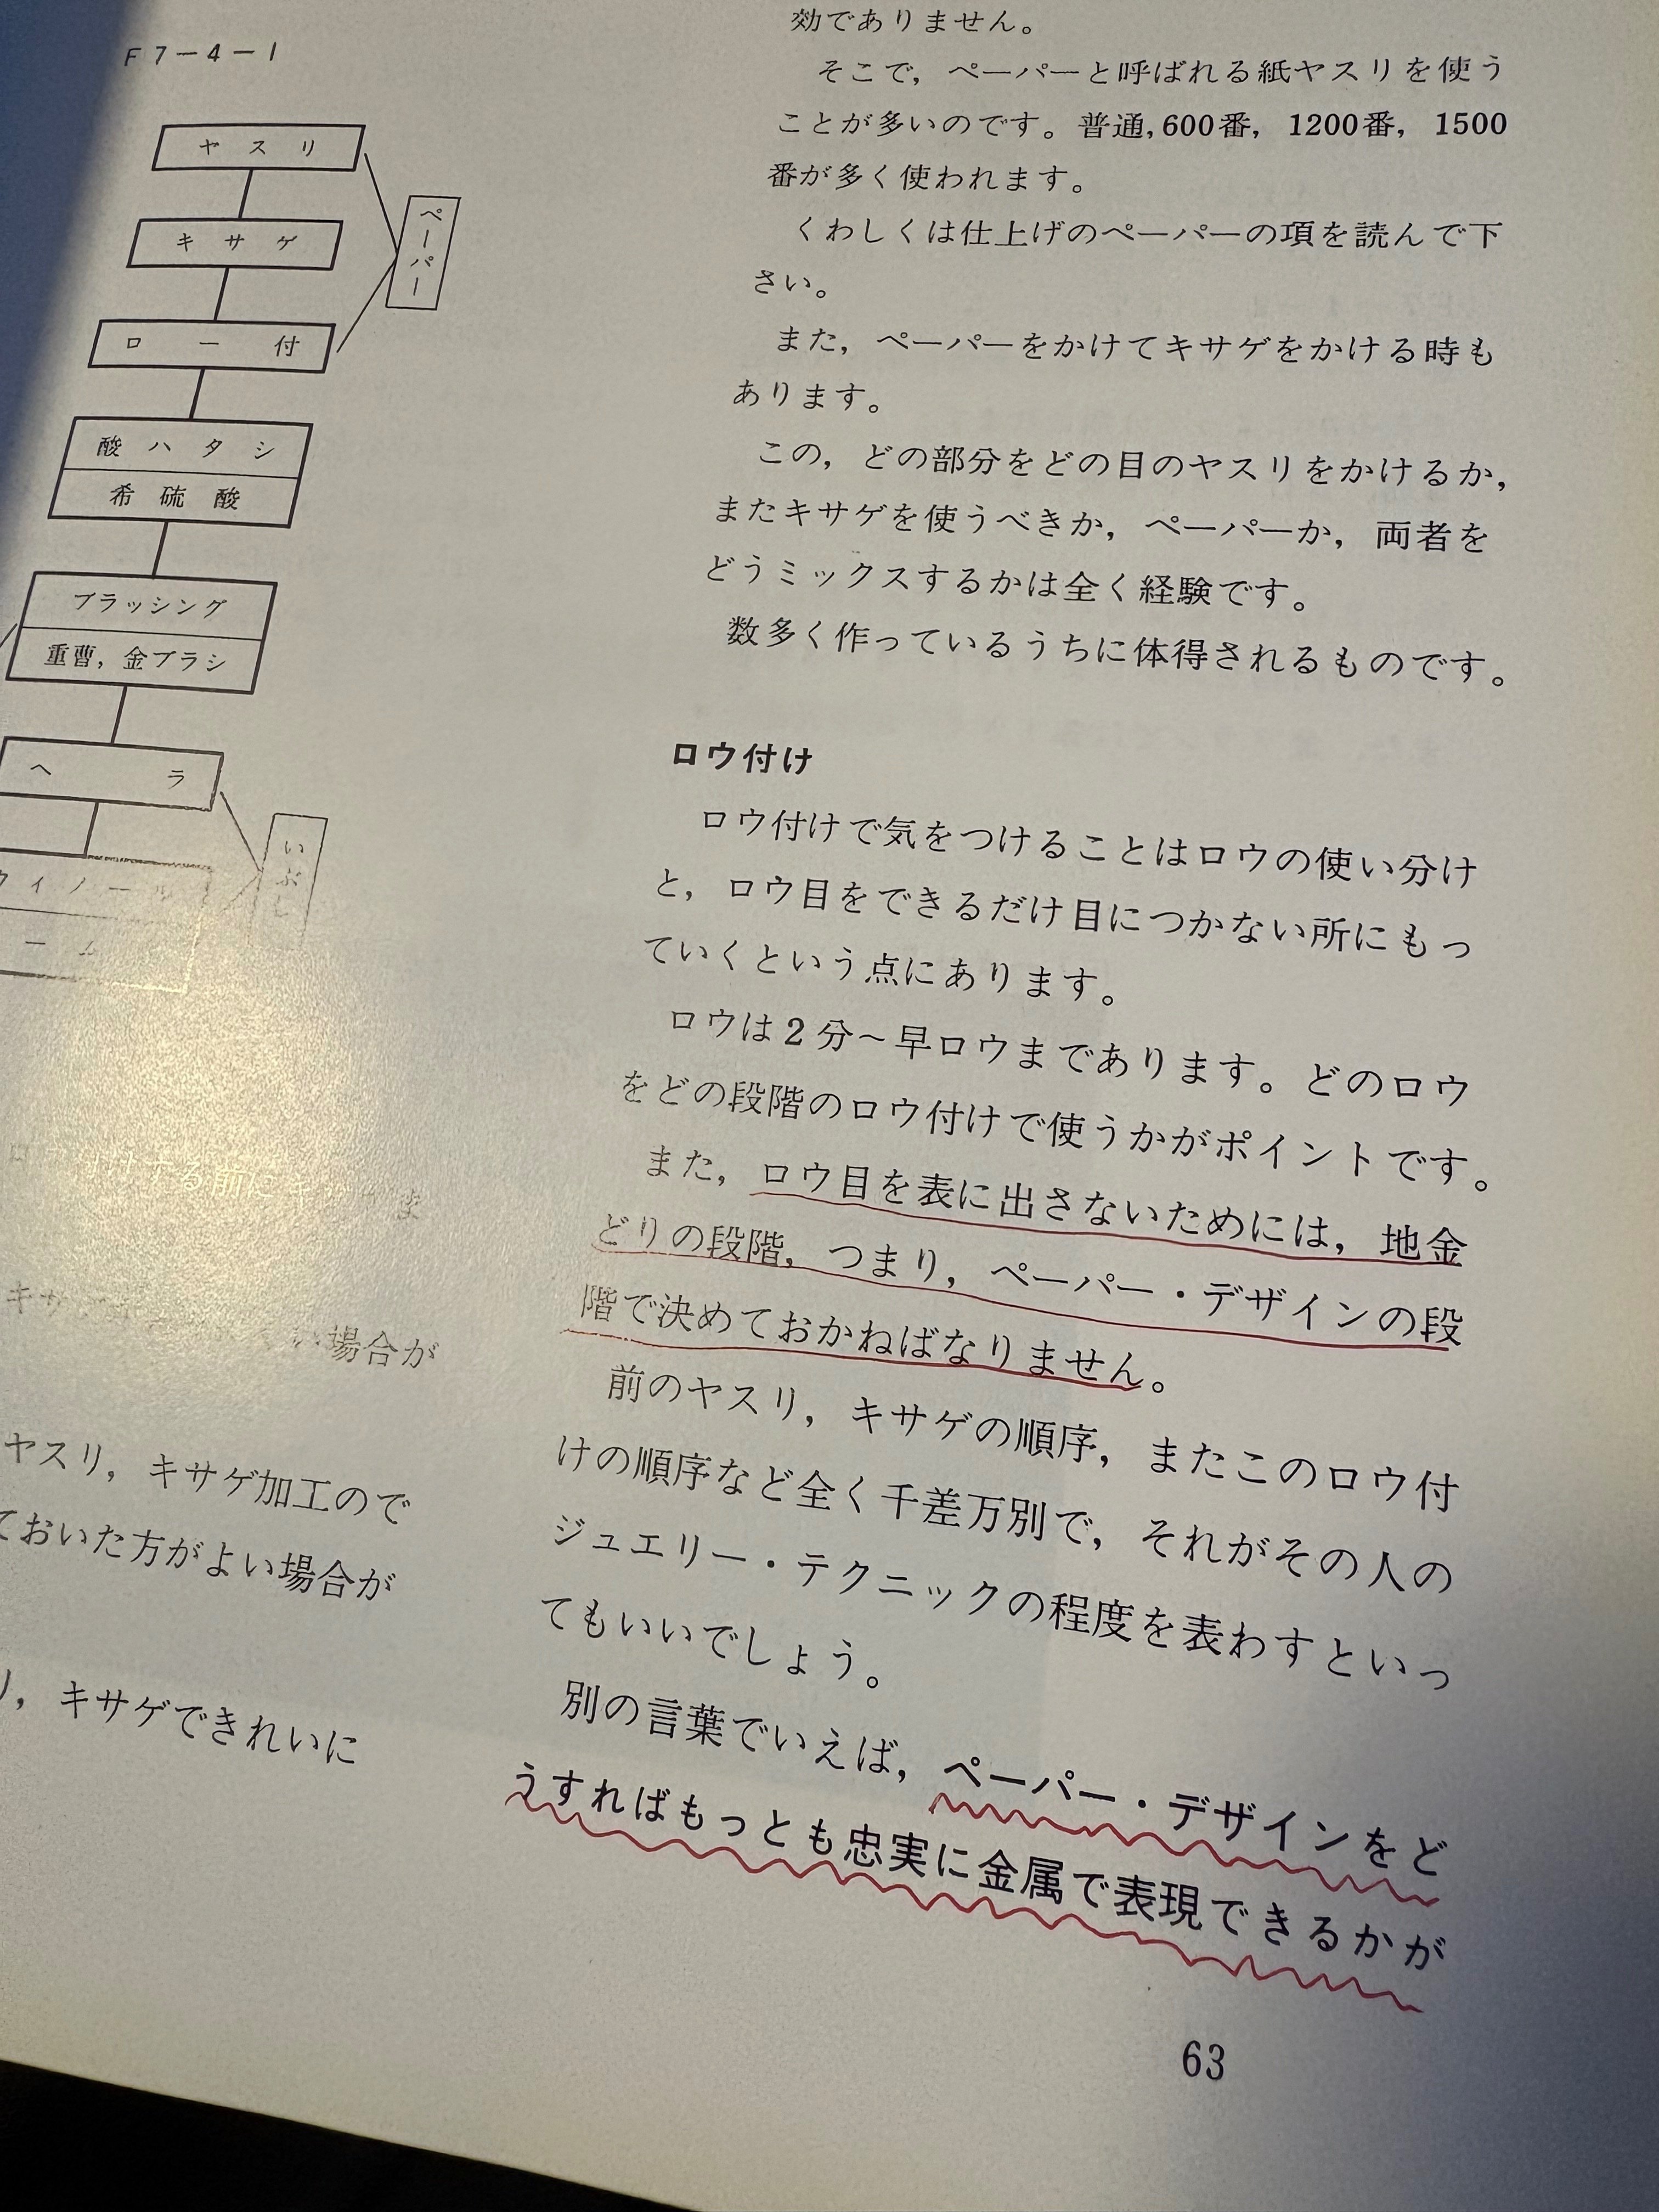 F7-4-1
ヤスリ
キサゲ
ペーパー
ロー付
酸ハタシ
希硫酸
ブラッシング
重曹，金ブラシ
ヘラ
いぶし
ーム
場合が
ヤスリ，キサゲ加工ので
ておいた方がよい場合が
，キサゲできれいに
効でありません。
そこで，ペーパーと呼ばれる紙ヤスリを使う
ことが多いのです。普通，600番，1200番，1500
番が多く使われます。
くわしくは仕上げのペーパーの項を読んで下
さい。
また，ペーパーをかけてキサゲをかける時も
あります。
この，どの部分をどの目のヤスリをかけるか，
またキサゲを使うべきか，ペーパーか，両者を
どうミックスするかは全く経験です。
数多く作っているうちに体得されるものです。
ロウ付け
ロウ付けで気をつけることはロウの使い分け
と，ロウ目をできるだけ目につかない所にもっ
ていくという点にあります。
ロウは2分～早ロウまであります。どのロウ
をどの段階のロウ付けで使うかがポイントです。
また，ロウ目を表に出さないためには，地金
どりの段階，つまり，ペーパー・デザインの段
階で決めておかねばなりません。
前のヤスリ，キサゲの順序，またこのロウ付
けの順序など全く千差万別で，それがその人の
ジュエリー・テクニックの程度を表わすといっ
てもいいでしょう。
別の言葉でいえば，ペーパー・デザインをど
うすればもっとも忠実に金属で表現できるかが
63